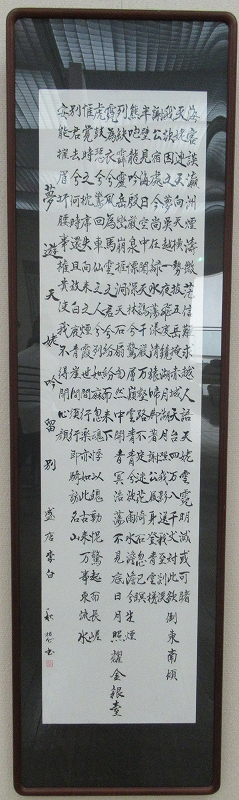 海客談瀛洲煙濤微茫信難求越人語天姥雲霓明滅或可睹
天姥連天向天橫勢拔五嶽掩赤城天台四萬八千丈對此欲倒東南傾
我欲因之夢吳越一夜飛度鏡湖月湖月照我影送我至剡溪
謝公宿處今尚在淥水蕩漾清猿啼腳著謝公屐身登青雲梯
半壁見海日空中聞天雞千巖萬壑路不定迷花倚石忽已暝
熊咆龍吟殷巖泉慄深林兮驚層巔雲青青兮欲雨水澹澹兮生煙
列缺霹靂丘巒崩摧洞天石扇訇然中開青冥浩蕩不見底日月照耀金銀臺
霓為衣兮風為馬雲之君兮紛紛而來下
虎鼓瑟兮鸞回車仙之人兮列如麻忽魂悸以魄動怳驚起而長嗟
惟覺時之枕席失向來之煙霞世間行樂亦如此古來萬事東流水
別君去兮何時還且放白鹿青崖間須行即騎訪名山
安能摧眉折腰事權貴使我不得開心顏
夢遊天姥吟留別 盛唐李白 秋